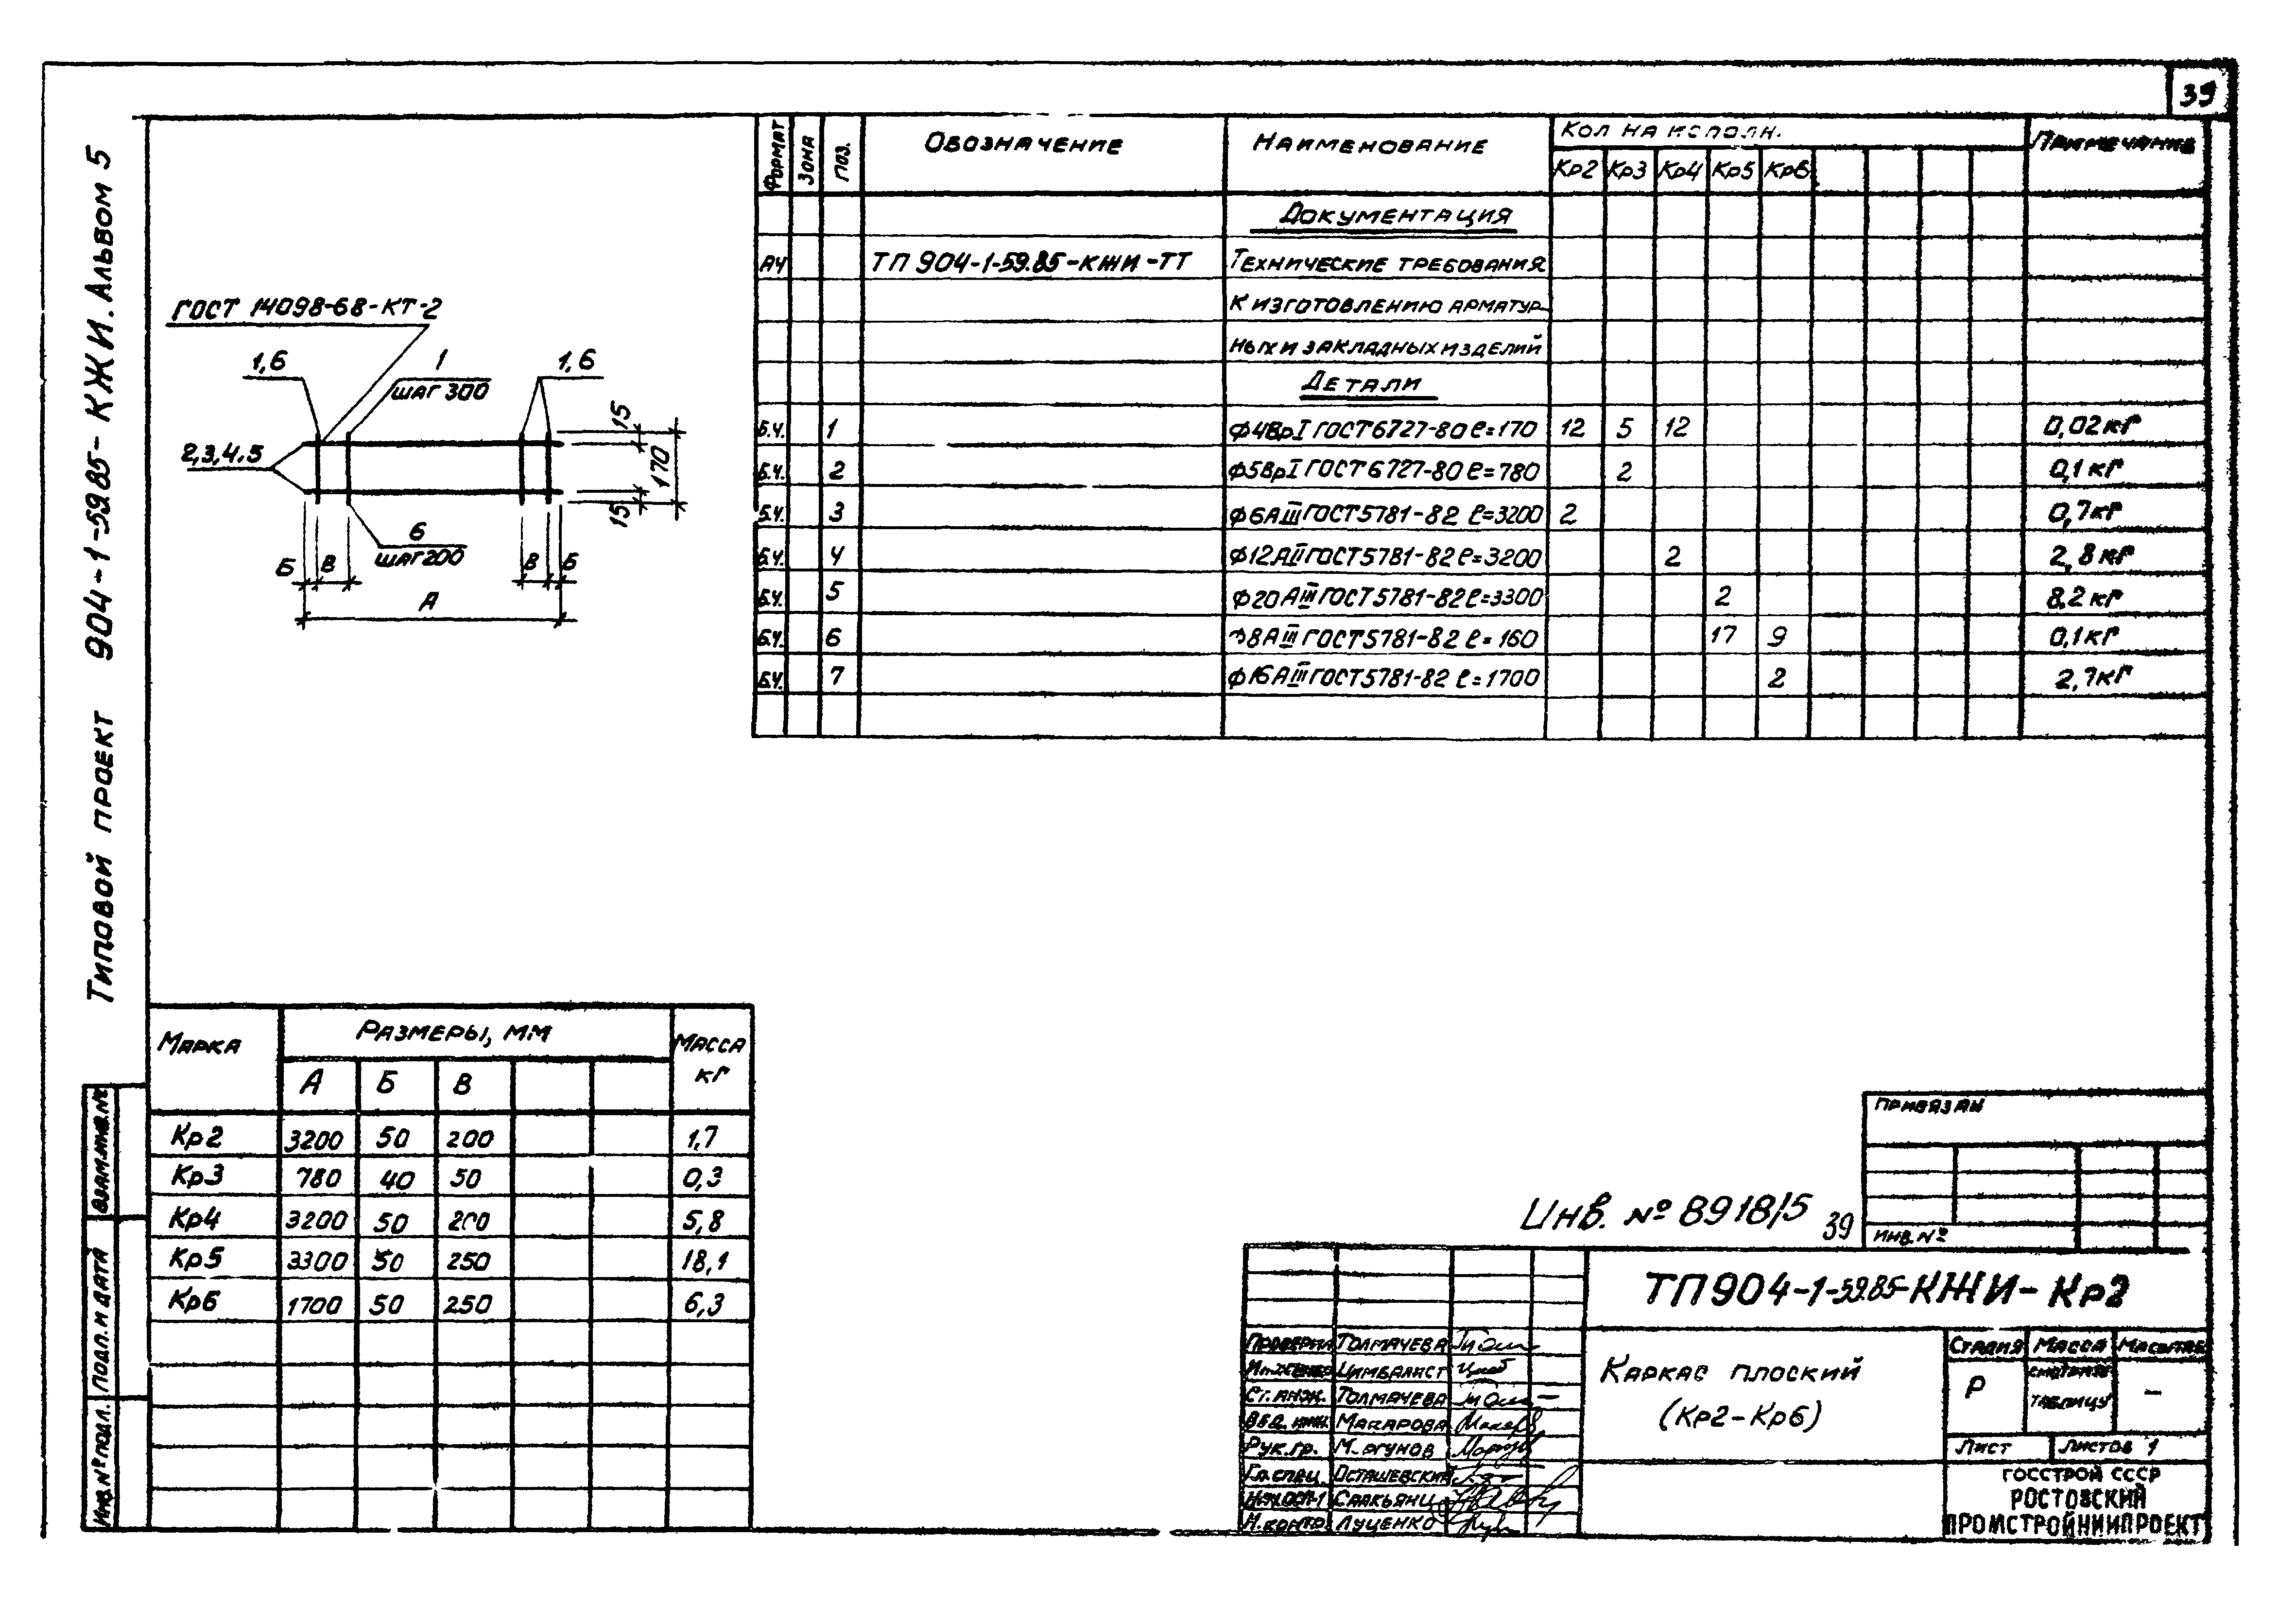 39
Типовой проект 904-1-59.85-КЖИ. Альбом 5
ГОСТ 14098-68-КТ-2
1,6
1
шаг 300
1,6
2,3,4,5
6
шаг 200
15
170
15
Б
В
В
Б
А
Формат Зона Поз. Обозначение Наименование Кол на исполн. Примечание
Кр2 Кр3 Кр4 Кр5 Кр6
Документация
А4 ТП 904-1-59.85-КЖИ-ТТ Технические требования
к изготовлению арматур-
ных и закладных изделий
Детали
Б.Ч. 1 ф4ВрI ГОСТ 6727-80 ℓ=170 12 5 12 0,02 кг
Б.Ч. 2 ф5ВрI ГОСТ 6727-80 ℓ=780 2 0,1 кг
Б.Ч. 3 ф6АIII ГОСТ 5781-82 ℓ=3200 2 0,7 кг
Б.Ч. 4 ф12АII ГОСТ 5781-82 ℓ=3200 2 2,8 кг
Б.Ч. 5 ф20АIII ГОСТ 5781-82 ℓ=3300 2 8,2 кг
Б.Ч. 6 ф8АIII ГОСТ 5781-82 ℓ=160 17 9 0,1 кг
Б.Ч. 7 ф16АIII ГОСТ 5781-82 ℓ=1700 2 2,7 кг
Марка Размеры, мм Масса кг
А Б В
Кр2 3200 50 200 1,7
Кр3 780 40 50 0,3
Кр4 3200 50 200 5,8
Кр5 3300 50 250 18,1
Кр6 1700 50 250 6,3
Взам.инв.№
Подп. и дата
Инв.№ подл.
Привязан
Инв.№
Инв. № 8918/5 39
ТП904-1-59.85-КЖИ-Кр2
Проверил Толмачева
Инженер Цимбалист
Ст. инж. Толмачева
Вед. инж. Макарова
Рук.гр. Моргунов
Гл.спец. Осташевский
Саакьянц
Н.контр. Луценко
Каркас плоский
(Кр2-Кр6)
Стадия Масса Масштаб
Р таблицу –
Лист Листов 1
ГОССТРОЙ СССР
РОСТОВСКИЙ
ПРОМСТРОЙНИИПРОЕКТ